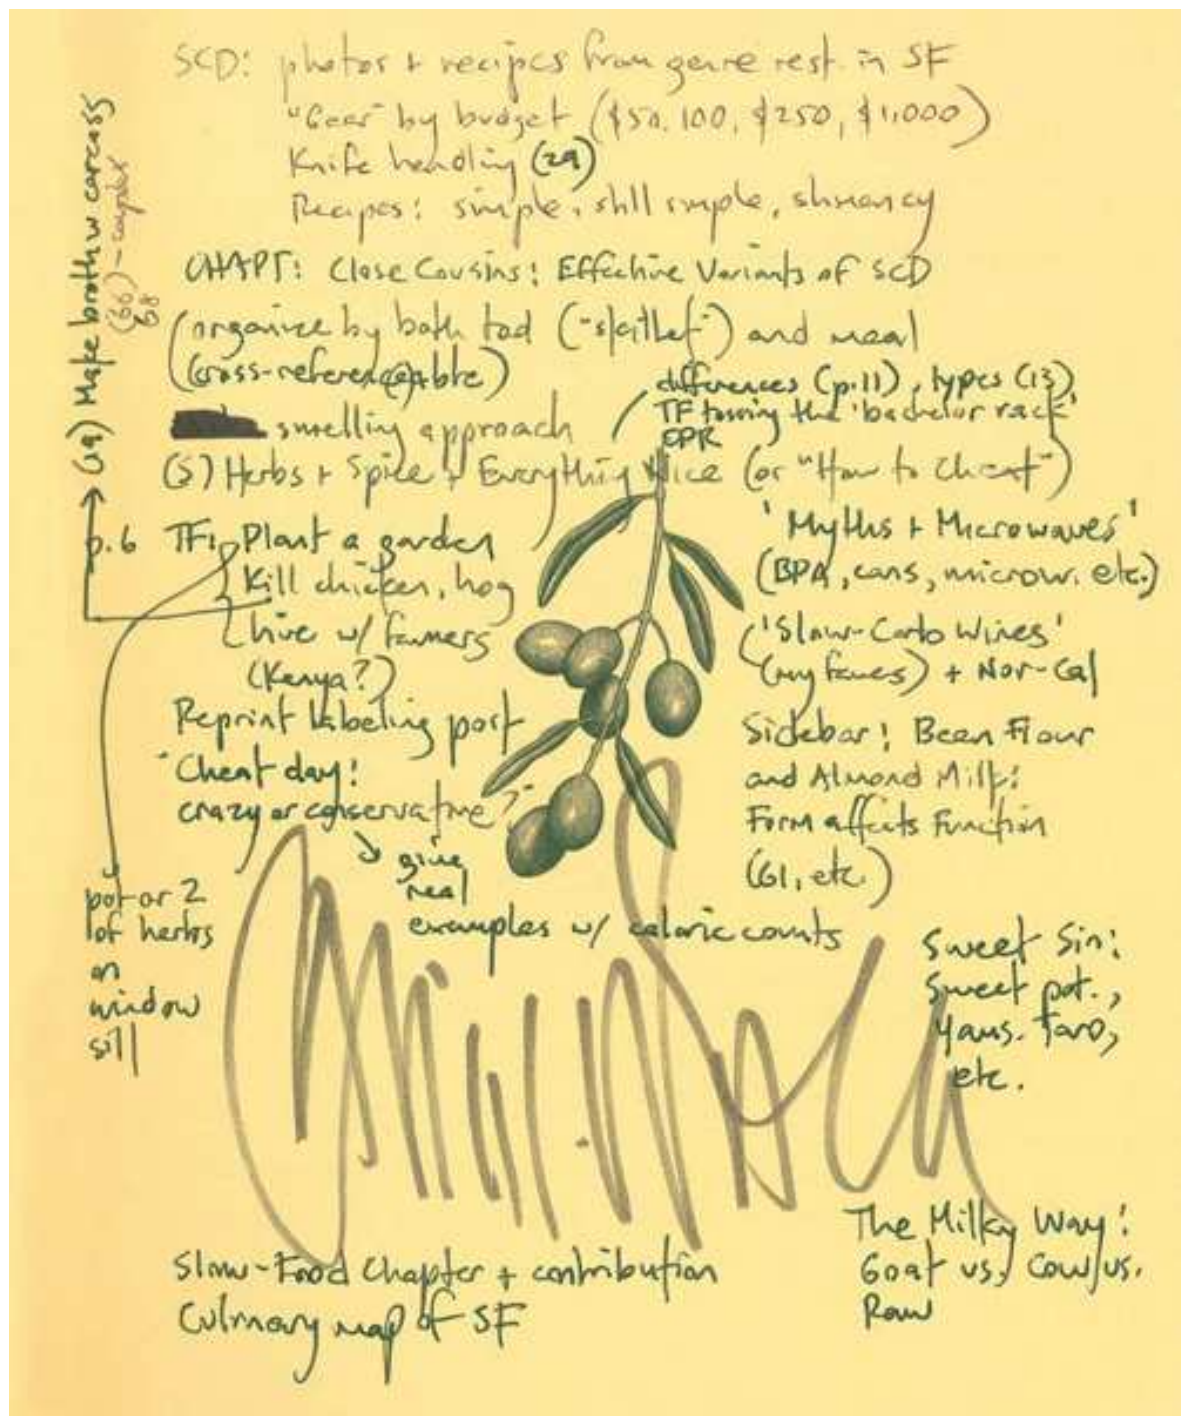 SCD: photos + recipes from genre rest. in SF
"Gear" by budget ($50, 100, $250, $1,000)
Knife handling (29)
Recipes: simple, still simple, shmancy
CHAPT: Close Cousins: Effective Variants of SCD
(organize by both tool ("skillet") and meal
(cross-referenceable)
differences (p.11), types (13)
TF tossing the 'bachelor rack'
smelling approach
EPR
(5) Herbs + Spice + Everything Nice (or "How to Cheat")
p.6 TF: Plant a garden
Kill chicken, hog
Live w/ farmers
(Kenya?)
Reprint labeling post
"Cheat day:
crazy or conservative?"
give
real
examples w/ caloric counts
(29) Make broth w carcass
(66) - complex
68
pot or 2
of herbs
on
window
sill
'Myths + Microwaves'
(BPA, cans, microw. etc.)
'Slow-Carb Wines'
(my faves) + Nor-Cal
Sidebar: Bean Flour
and Almond Milk:
Form affects Function
(GI, etc.)
Sweet Sin:
Sweet pot.,
Yams. Taro,
etc.
The Milky Way:
Goat vs. Cow vs.
Raw
Slow-Food Chapter + contribution
Culinary map of SF